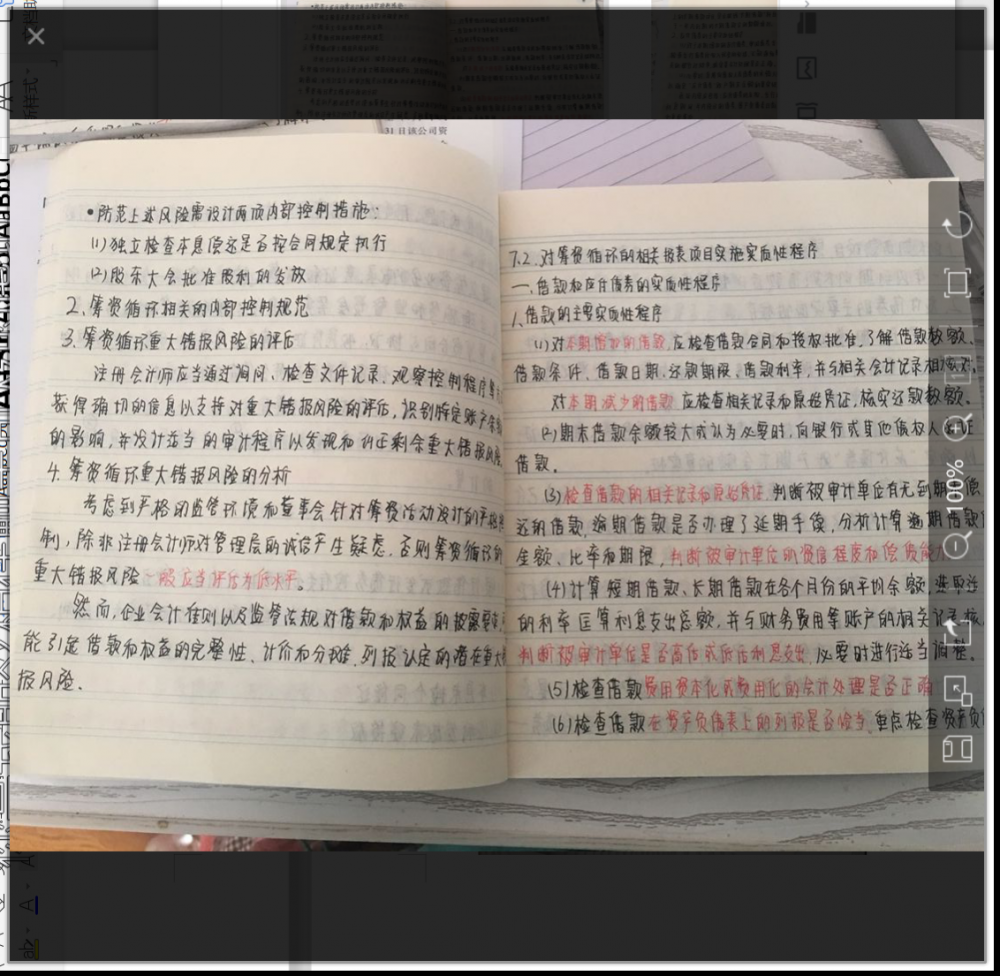 31日该公司资
•防范上述风险需设计两项内部控制措施:
(1)独立检查本息偿还是否按合同规定执行
(2)股东大会批准股利的发放
2.筹资循环相关的内部控制规范
3.筹资循环重大错报风险的评估
注册会计师应当通过询问、检查文件记录、观察控制程序等
获得确切的信息以支持对重大错报风险的评估,识别特定账户余额
的影响,并设计适当的审计程序以发现和纠正剩余重大错报风险
4.筹资循环重大错报风险的分析
考虑到严格的监管环境和董事会针对筹资活动设计的严格
制,除非注册会计师对管理层的诚信产生疑虑,否则筹资循环的
重大错报风险一般应当评估为低水平。
然而,企业会计准则以及监管法规对借款和权益的披露要求,
能引起借款和权益的完整性、计价和分摊、列报认定的潜在重大
报风险.
7.2.对筹资循环的相关报表项目实施实质性程序
一.借款和应付债券的实质性程序
1.借款的主要实质性程序
(1)对本期增加的借款,应检查借款合同和授权批准,了解借款数额、
借款条件、借款日期、还款期限、借款利率,并与相关会计记录相核对.
对本期减少的借款,应检查相关记录和原始凭证,核实还款数额.
(2)期末借款余额较大或认为必要时,向银行或其他债权人函证
借款.
(3)检查借款的相关记录和原始凭证,判断被审计单位有无到期未偿
还的借款,逾期借款是否办理了延期手续,分析计算逾期借款
金额、比率和期限,判断被审计单位的资信程度和偿债能力
(4)计算短期借款、长期借款在各个月份的平均余额,选取适
的利率匡算利息支出总额,并与财务费用等账户的相关记录核
判断被审计单位是否高估或低估利息支出,必要时进行适当调整.
(5)检查借款费用资本化或费用化的会计处理是否正确
(6)检查借款在资产负债表上的列报是否恰当,重点检查资产负
100%